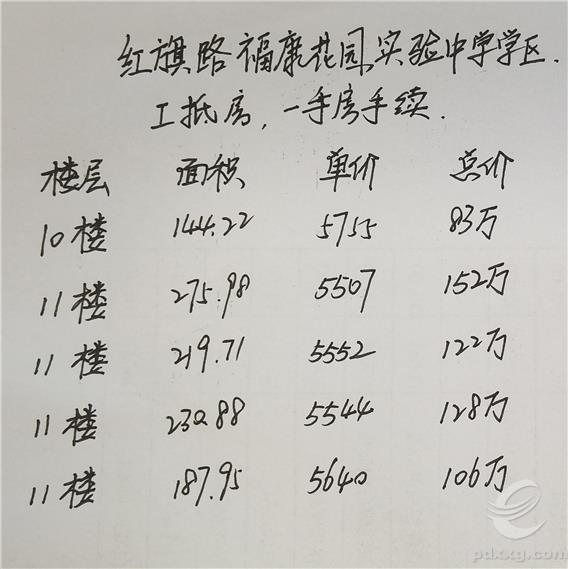 红旗路福康花园,实验中学学区.
工抵房,一手房手续.
楼层 面积 单价 总价
10楼 144.22 5755 83万
11楼 275.98 5507 152万
11楼 219.71 5552 122万
11楼 230.88 5544 128万
11楼 187.95 5640 106万
pdxxg.com